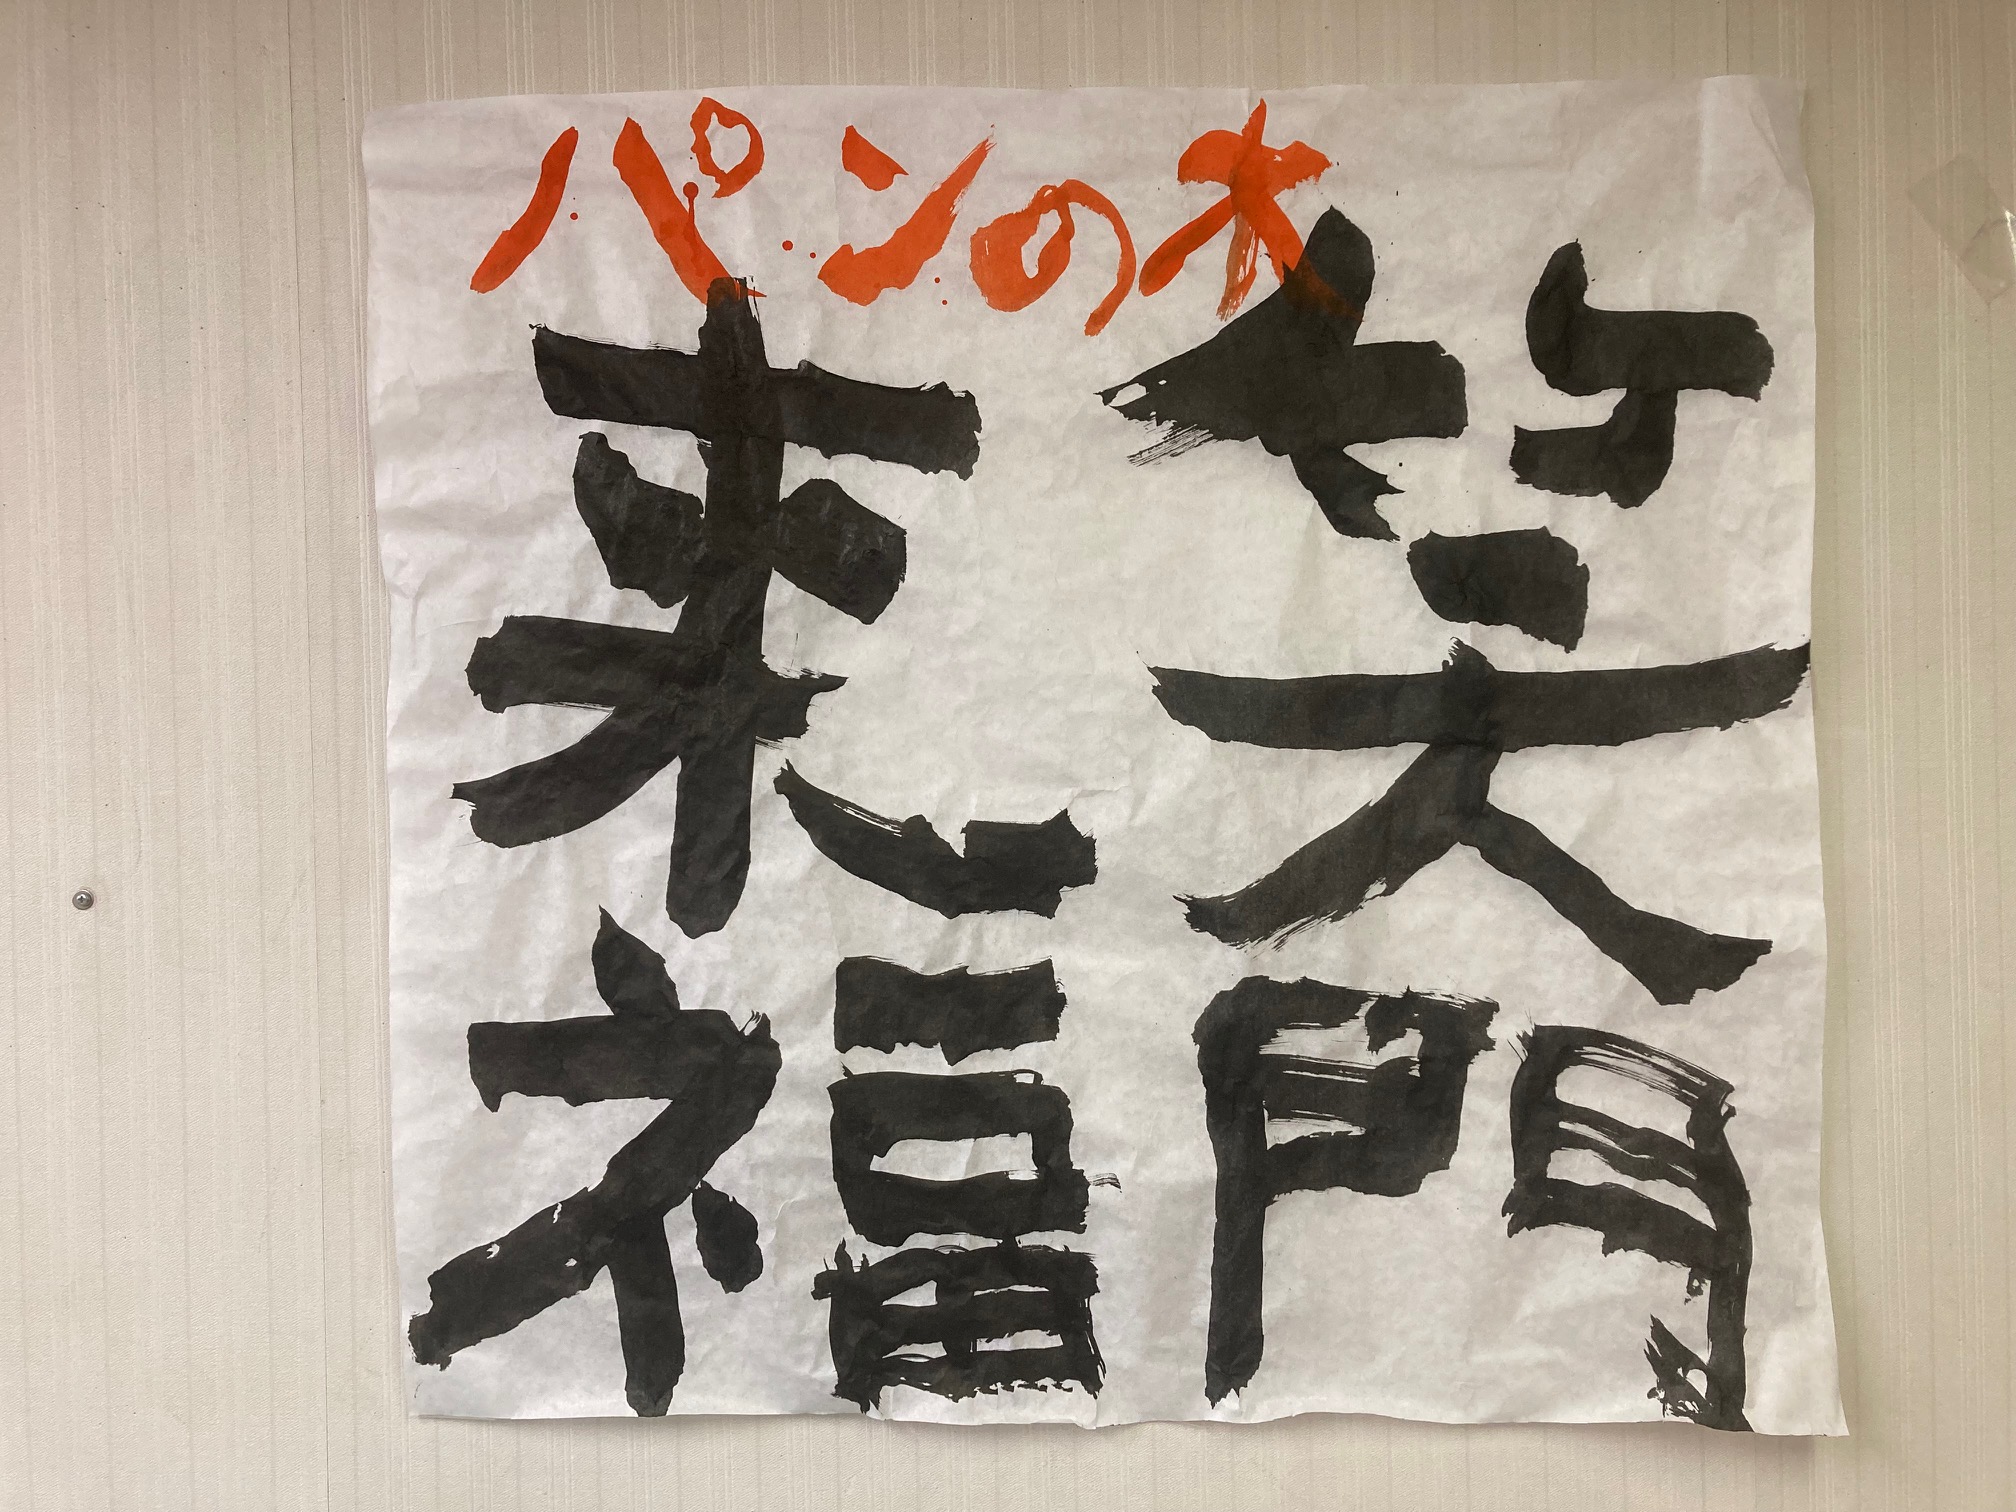 パンの木
笑門
来福